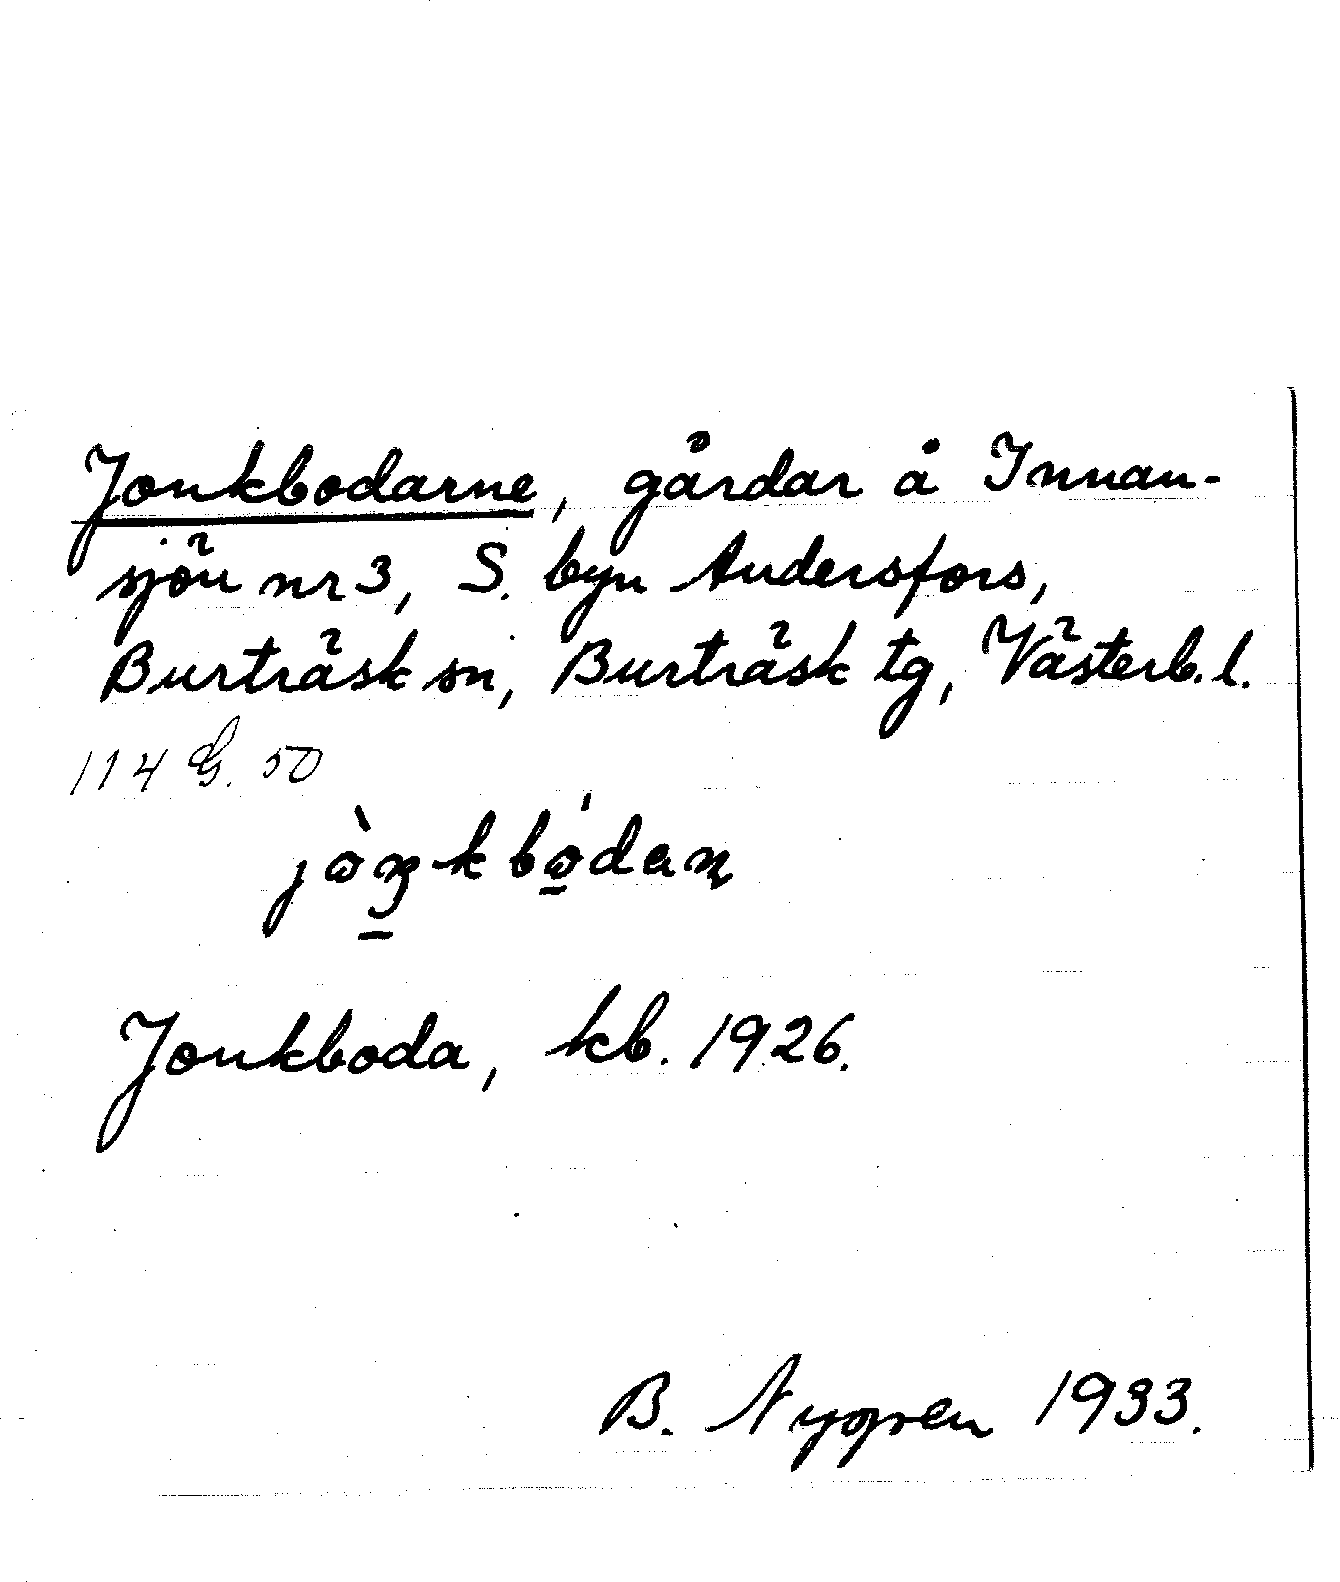 Jonkbodarne, gårdar å Innan-
sjön nr 3, S. byn Andersfors,
Burträsk sn, Burträsk tg, Västerb. l.
114 G. 50
Jonkboda, kb. 1926.
B. Nygren 1933.